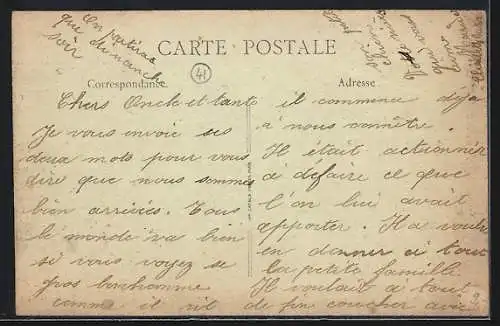 On partiras
que dimanche
soir
CARTE POSTALE
41
Correspondance
Adresse
Chers Oncle et tante
Je vous envoie ses
deux mots pour vous
dire que nous sommes
bien arrivées. Tous
le monde va bien
si vous voyez se
gos bonhomme
comme il rit
il commence déja
a nous connêtre.
Il était actionner
a défaire ce que
l'on lui avait
apporter. Il a voulu
en donner a tout
la petite famille
Il voulait a tout
de fin coucher avec